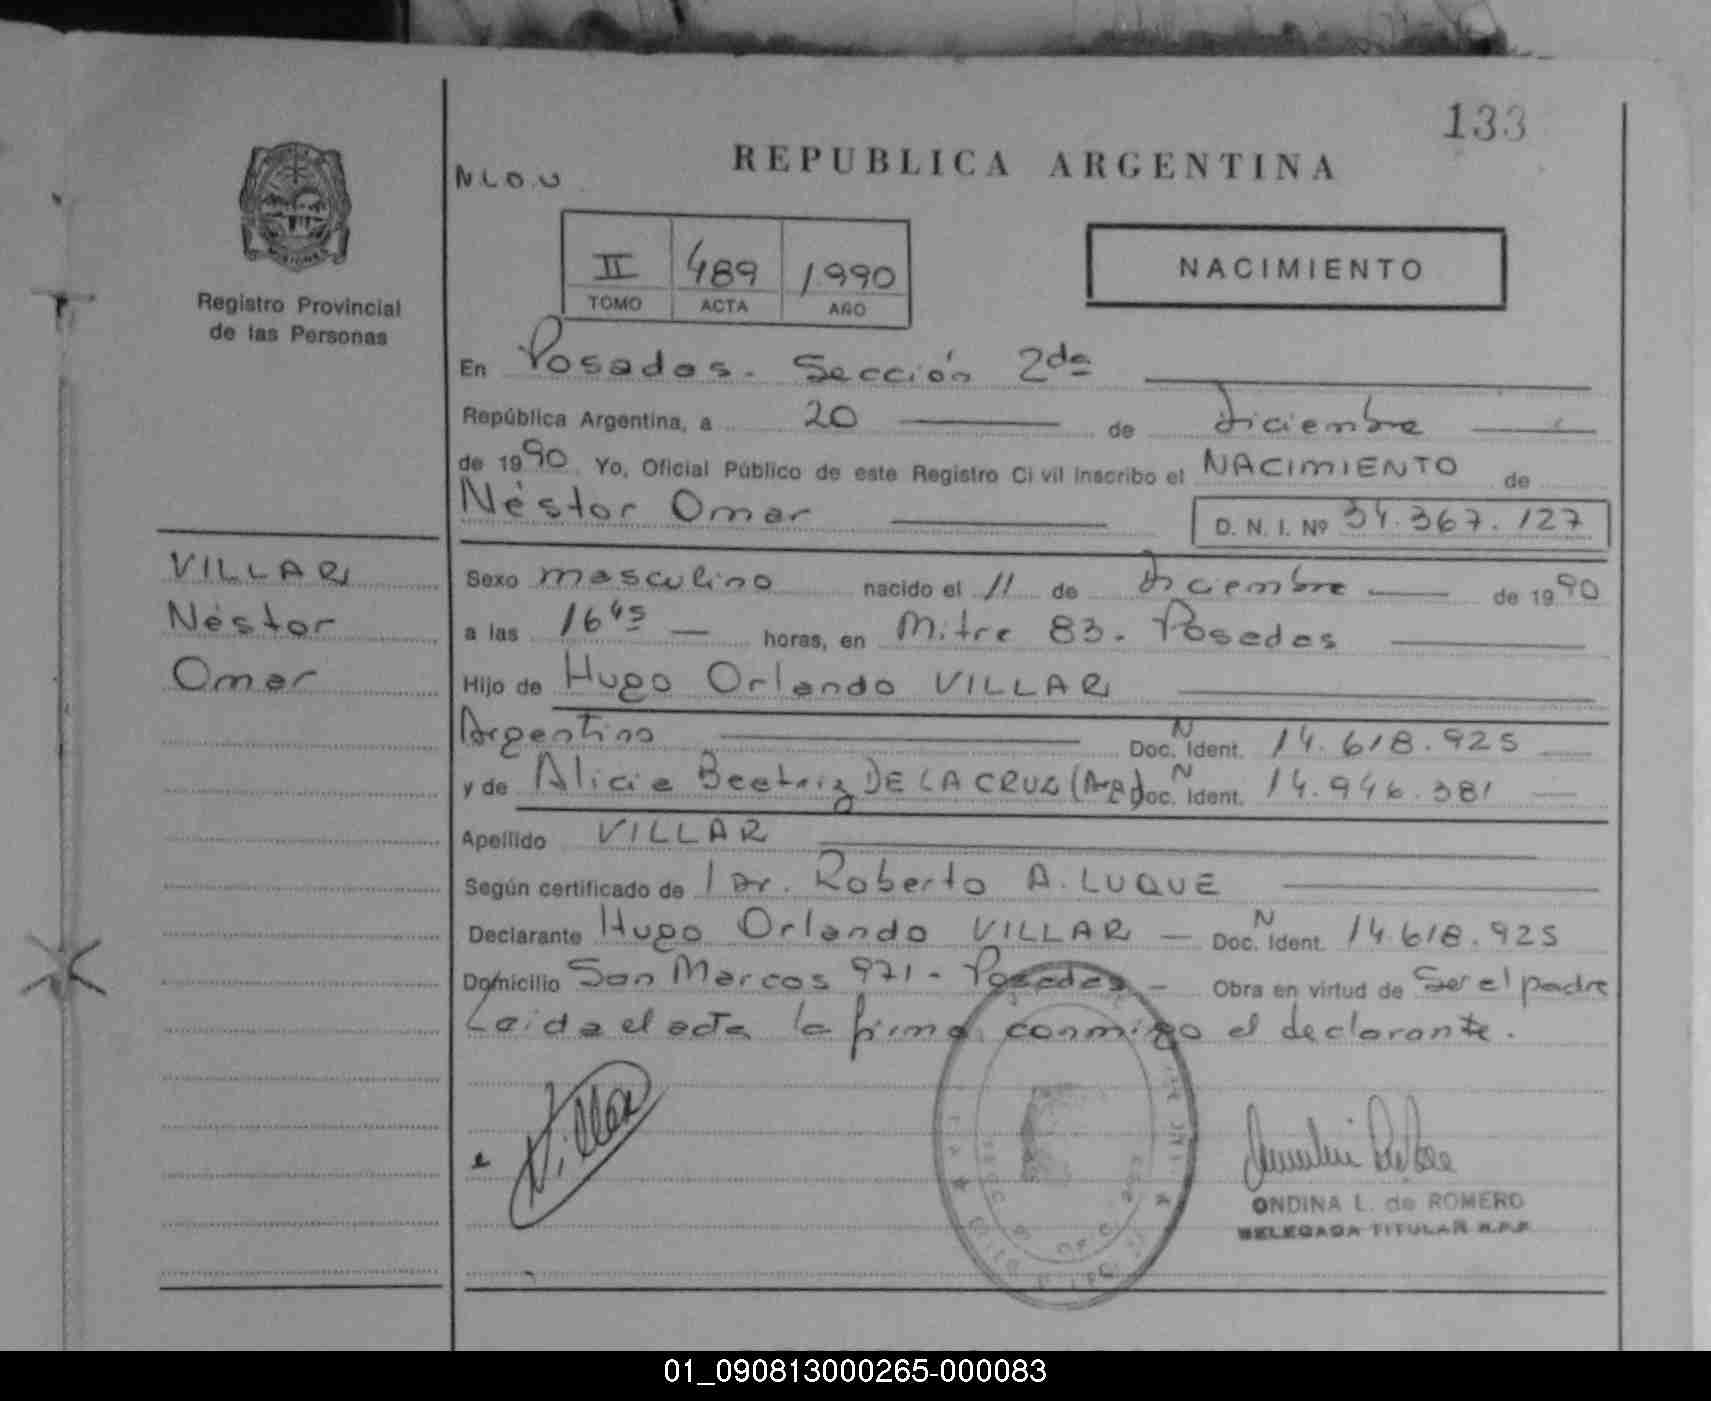 133
REPUBLICA ARGENTINA
N L O. U
NACIMIENTO
II 489 1.990
TOMO ACTA AÑO
Registro Provincial
de las Personas
En Posadas. Sección 2da
República Argentina, a 20 de diciembre
de 1990. Yo, Oficial Público de este Registro Civil inscribo el NACIMIENTO de
Néstor Omar D. N. I. Nº 34.367.127
VILLAR
Néstor
Omar
Sexo masculino nacido el 11 de diciembre de 1990
a las 16 45 horas, en Mitre 83. Posadas
Hijo de Hugo Orlando VILLAR
Argentino Doc. N Ident. 14.618.925
y de Alicia Beatriz DE LA CRUZ (Arg) Doc. N Ident. 14.946.381
Apellido VILLAR
Según certificado de 1 Dr. Roberto A. LUQUE
Declarante Hugo Orlando VILLAR - Doc. N Ident. 14.618.925
Domicilio San Marcos 971 - Posadas - Obra en virtud de Ser el padre
Leida el acta la firma conmigo el declarante.
Villar
ONDINA L. de ROMERO
DELEGADA TITULAR R.P.P.
01_090813000265-000083